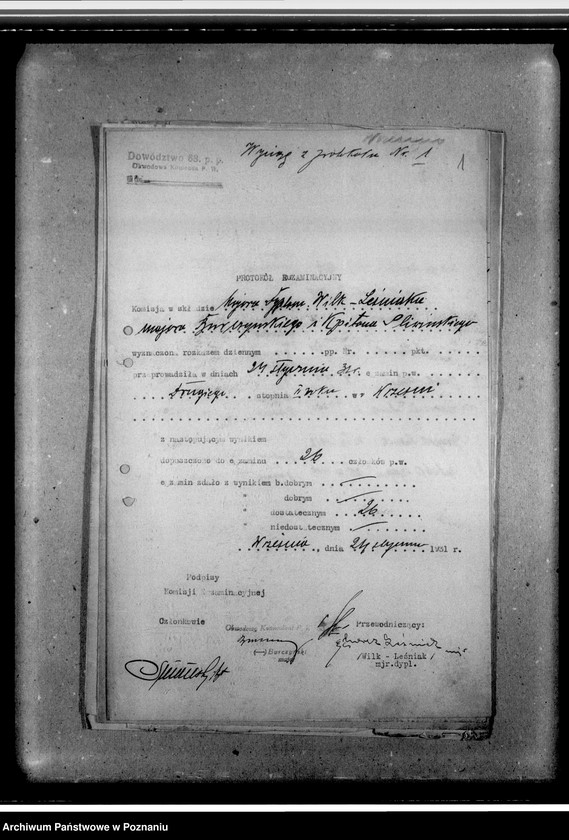 Dowództwo 68. p. p.
Obwodowa Komenda P. W.
Wyciąg z protokołu No. 1
1
PROTOKÓŁ EGZAMINACYJNY
Komisja w składzie Majora Dyplom. Wilk-Leśniaka
majora Burczyńskiego i Kpitana Śliwińskiego
wyznaczon. rozkazem dziennym . . . . . . pp. Nr. . . . . . pkt.
przeprowadziła w dniach 24 stycznia 31r. egzamin p.w.
Drugiego stopnia w Wrześni
z następującym wynikiem
dopuszczono do egzaminu 26 członków p.w.
egzamin zdało z wynikiem b.dobrym —
" dobrym —
" dostatecznym 26
" niedostatecznym —
Września, dnia 24 stycznia 1931 r.
Podpisy
Komisji Egzaminacyjnej
Członkowie
Obwodowy Komendant P. W.
Przewodniczący:
(—) Burczyński
major
/Wilk - Leśniak/
mjr.dypl.
Archiwum Państwowe w Poznaniu